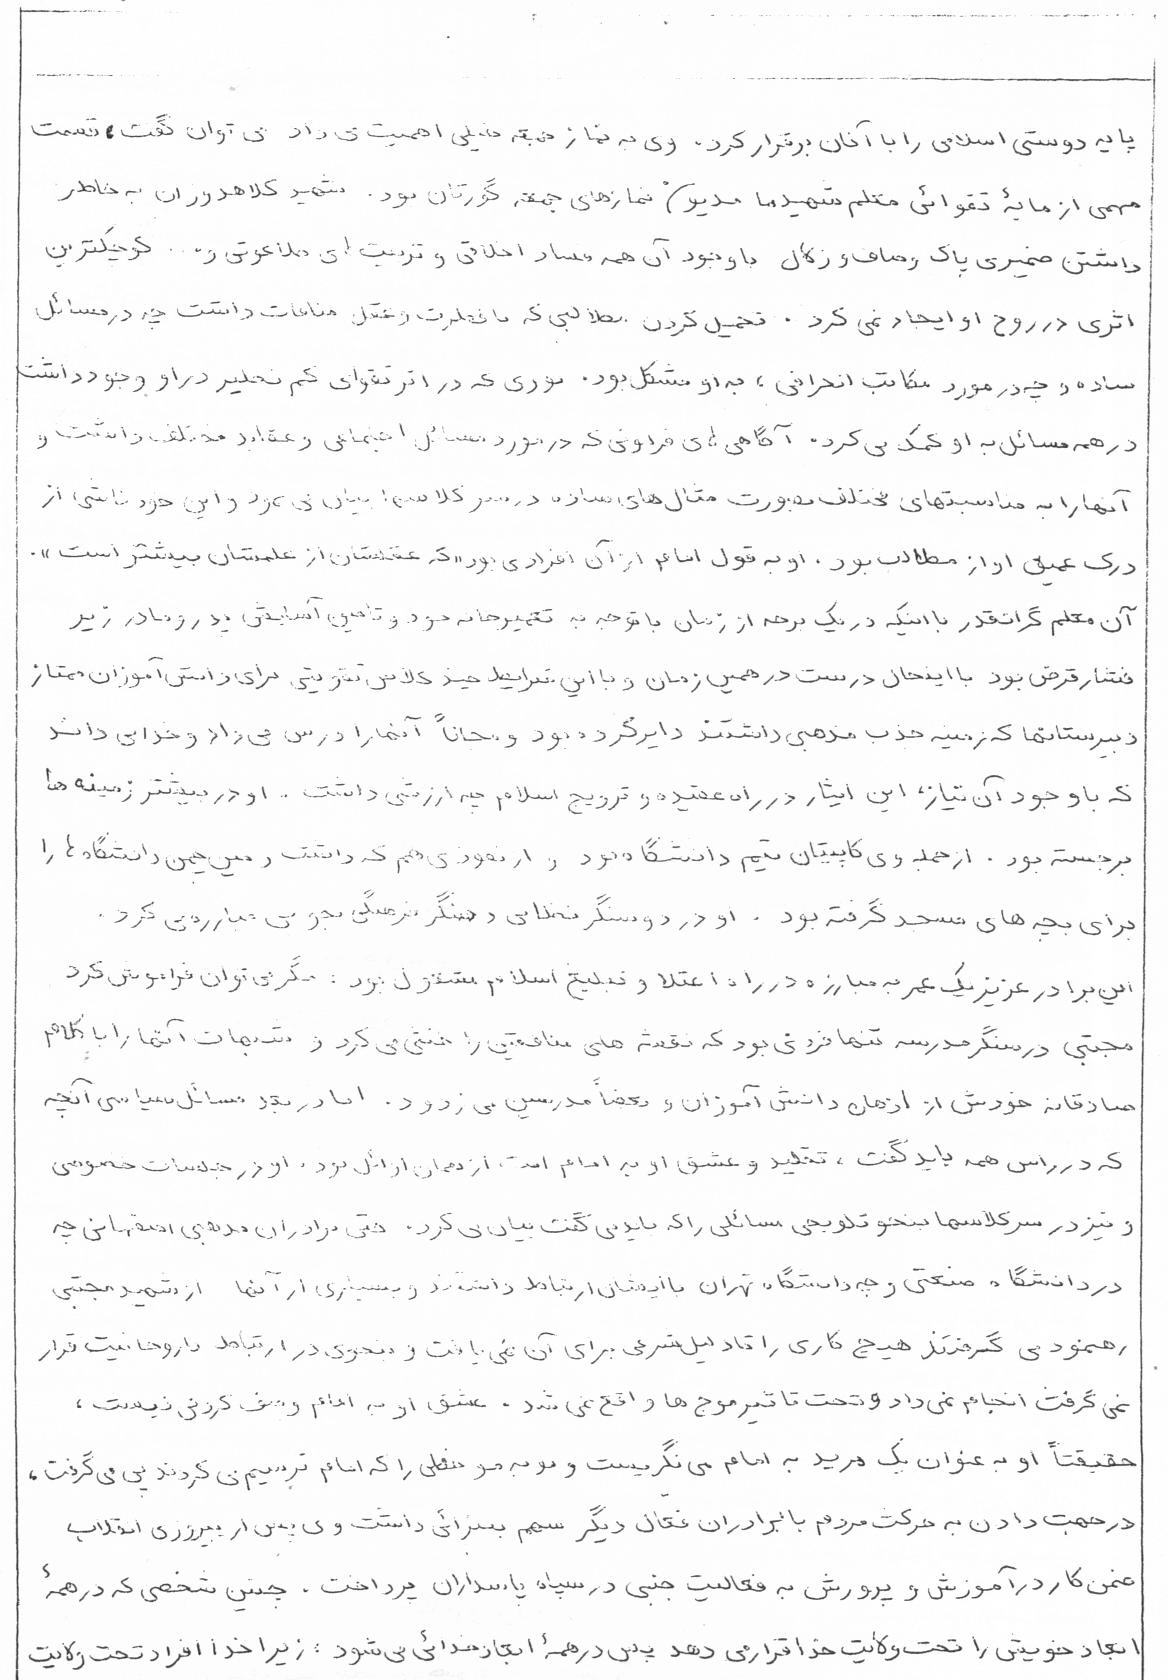 پایه دوستی اسلامی را با آنان برقرار کرد. وی به نماز جمعه خیلی اهمیت می داد می توان گفت، قسمت
مهمی از مایهٔ تقوائی معلم شهید ما مدیون نمازهای جمعه گورتان بود. شهید کلاهدوزان به خاطر
داشتن ضمیری پاک و صاف و زلال با وجود آن همه فساد اخلاقی و تربیت های طاغوتی و... کوچکترین
اثری در روح او ایجاد نمی کرد. تحمیل کردن مطالبی که با فطرت و عقل منافات داشت چه در مسائل
ساده و چه در مورد مکاتب انحرافی، به او مشکل بود. نوری که در اثر تقوای کم نظیر در او وجود داشت
در همه مسائل به او کمک می کرد. آگاهی های فراونی که در مورد مسائل اجتماعی و عقاید مختلف داشت و
آنها را به مناسبتهای مختلف بصورت مثال های ساده در سر کلاسها بیان می نمود و این خود ناشی از
درک عمیق او از مطالب بود. او به قول امام از آن افرادی بود «که عقلشان از علمشان بیشتر است».
آن معلم گرانقدر با اینکه در یک برهه از زمان با توجه به تعمیر خانه خود و تامین آسایش پدر و مادر زیر
فشار قرض بود با اینحال درست در همین زمان و با این شرایط چند کلاس تقویتی برای دانش آموزان ممتاز
دبیرستانها که زمینه جذب مذهبی داشتند دایر کرده بود و مجاناً آنها را درس می داد و خدا می داند
که با وجود آن نیاز، این ایثار در راه عقیده و ترویج اسلام چه ارزشی داشت. او در بیشتر زمینه ها
برجسته بود. از جمله وی کاپیتان تیم دانشگاه بود و از نفوذی هم که داشت زمین چمن دانشگاه ها را
برای بچه های مسجد گرفته بود. او در دو سنگر نظامی و سنگر فرهنگی بخوبی مبارزه می کرد.
این برادر عزیز یک عمر به مبارزه در راه اعتلا و تبلیغ اسلام مشغول بود: مگر می توان فراموش کرد
مجتبی در سنگر مدرسه تنها فردی بود که نقشه های منافقین را خنثی می کرد و شبهات آنها را با کلام
صادقانه خودش از اذهان دانش آموزان و بعضاً مدرسین می زدود. اما در بعد مسائل سیاسی آنچه
که در راس همه باید گفت، تقلید و عشق او به امام امت از همان اوائل بود. او در جلسات خصوصی
و نیز در سر کلاسها بنحو تلویحی مسائلی را که باید می گفت بیان می کرد. حتی برادران مذهبی اصفهانی چه
در دانشگاه صنعتی و چه دانشگاه تهران با ایشان ارتباط داشتند و بسیاری از آنها از شهید مجتبی
رهنمود می گرفتند هیچ کاری را تا دلیل شرعی برای آن نمی یافت و بنحوی در ارتباط با روحانیت قرار
نمی گرفت انجام نمی داد و تحت تاثیر موج ها واقع نمی شد. عشق او به امام وصف کردنی نیست،
حقیقتاً او به عنوان یک مرید به امام می نگریست و مو به مو خطی را که امام ترسیم می کردند پی می گرفت،
در جهت دادن به حرکت مردم با برادران فعال دیگر سهم بسزائی داشت وی پس از پیروزی انقلاب
ضمن کار در آموزش و پرورش به فعالیت جنبی در سپاه پاسداران پرداخت. چنین شخصی که در همهٔ
ابعاد خویش را تحت ولایت خدا قرار می دهد پس در همهٔ ابعاد خدائی می شود؛ زیرا خدا افراد تحت ولایت